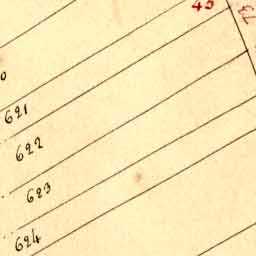 45
621
622
623
624